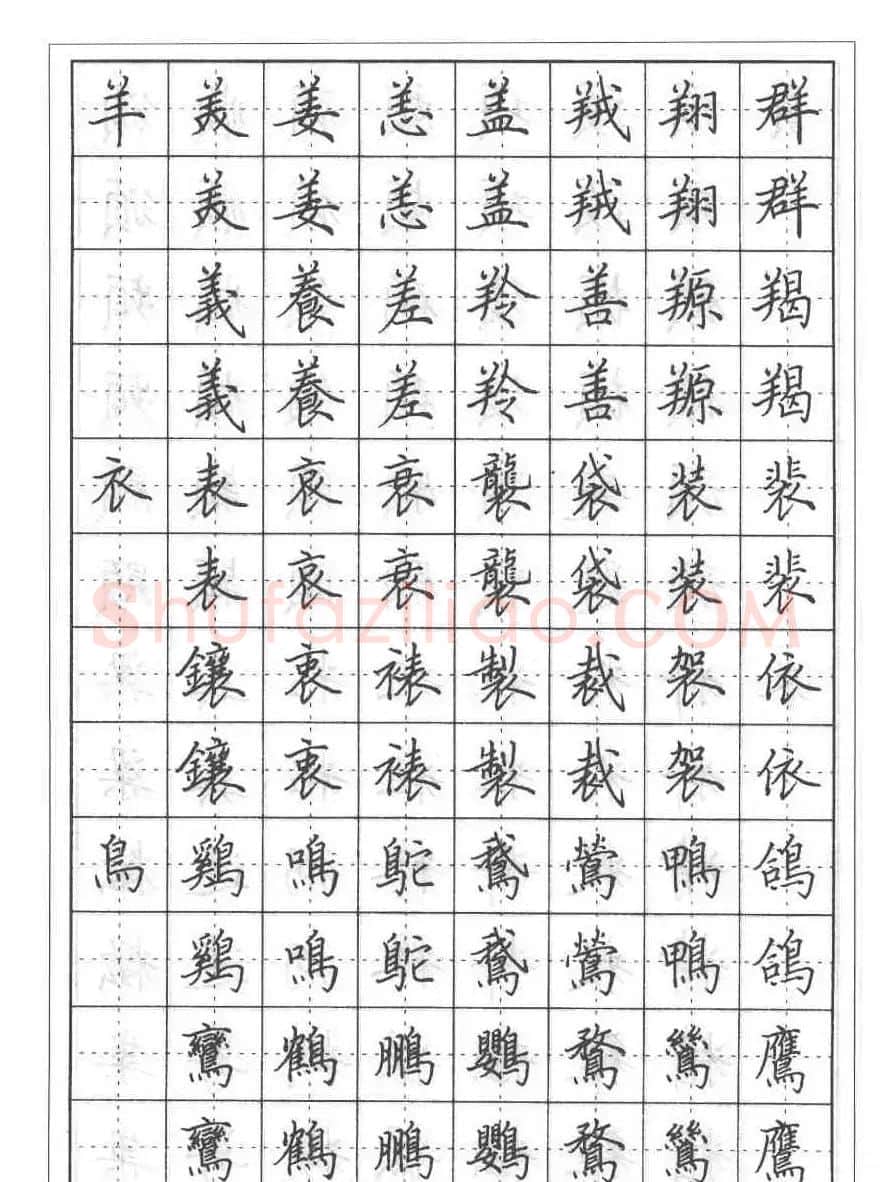 羊 美 姜 恙 盖 羢 翔 群
美 姜 恙 盖 羢 翔 群
義 養 差 羚 善 羱 羯
義 養 差 羚 善 羱 羯
衣 表 哀 衰 襲 袋 装 裴
表 哀 衰 襲 袋 装 裴
鑲 衷 裱 製 裁 袈 依
鑲 衷 裱 製 裁 袈 依
鳥 鷄 鳴 鴕 鵞 鶯 鴨 鴿
鷄 鳴 鴕 鵞 鶯 鴨 鴿
鸞 鶴 鵬 鸚 鶩 鷹
鸞 鶴 鵬 鸚 鶩 鷹
Shufaziliao.COM